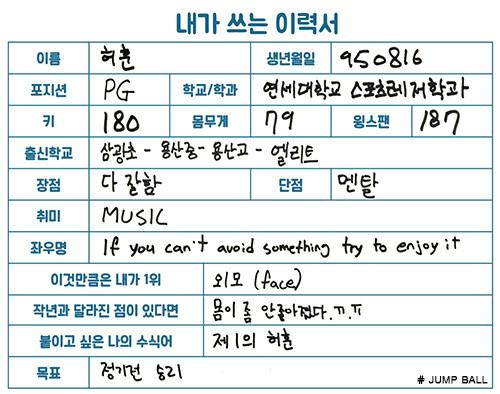 내가 쓰는 이력서
이름 허훈 생년월일 950816
포지션 PG 학교/학과 연세대학교 스포츠레저학과
키 180 몸무게 79 윙스팬 187
출신학교 삼광초 - 용산중 - 용산고 - 엘리트
장점 다 잘함 단점 멘탈
취미 MUSIC
좌우명 If you can't avoid something try to enjoy it
이것만큼은 내가 1위 외모 (face)
작년과 달라진 점이 있다면 몸이 좀 안좋아졌다.ㅠ.ㅠ
붙이고 싶은 나의 수식어 제1의 허훈
목표 정기전 승리
# JUMP BALL